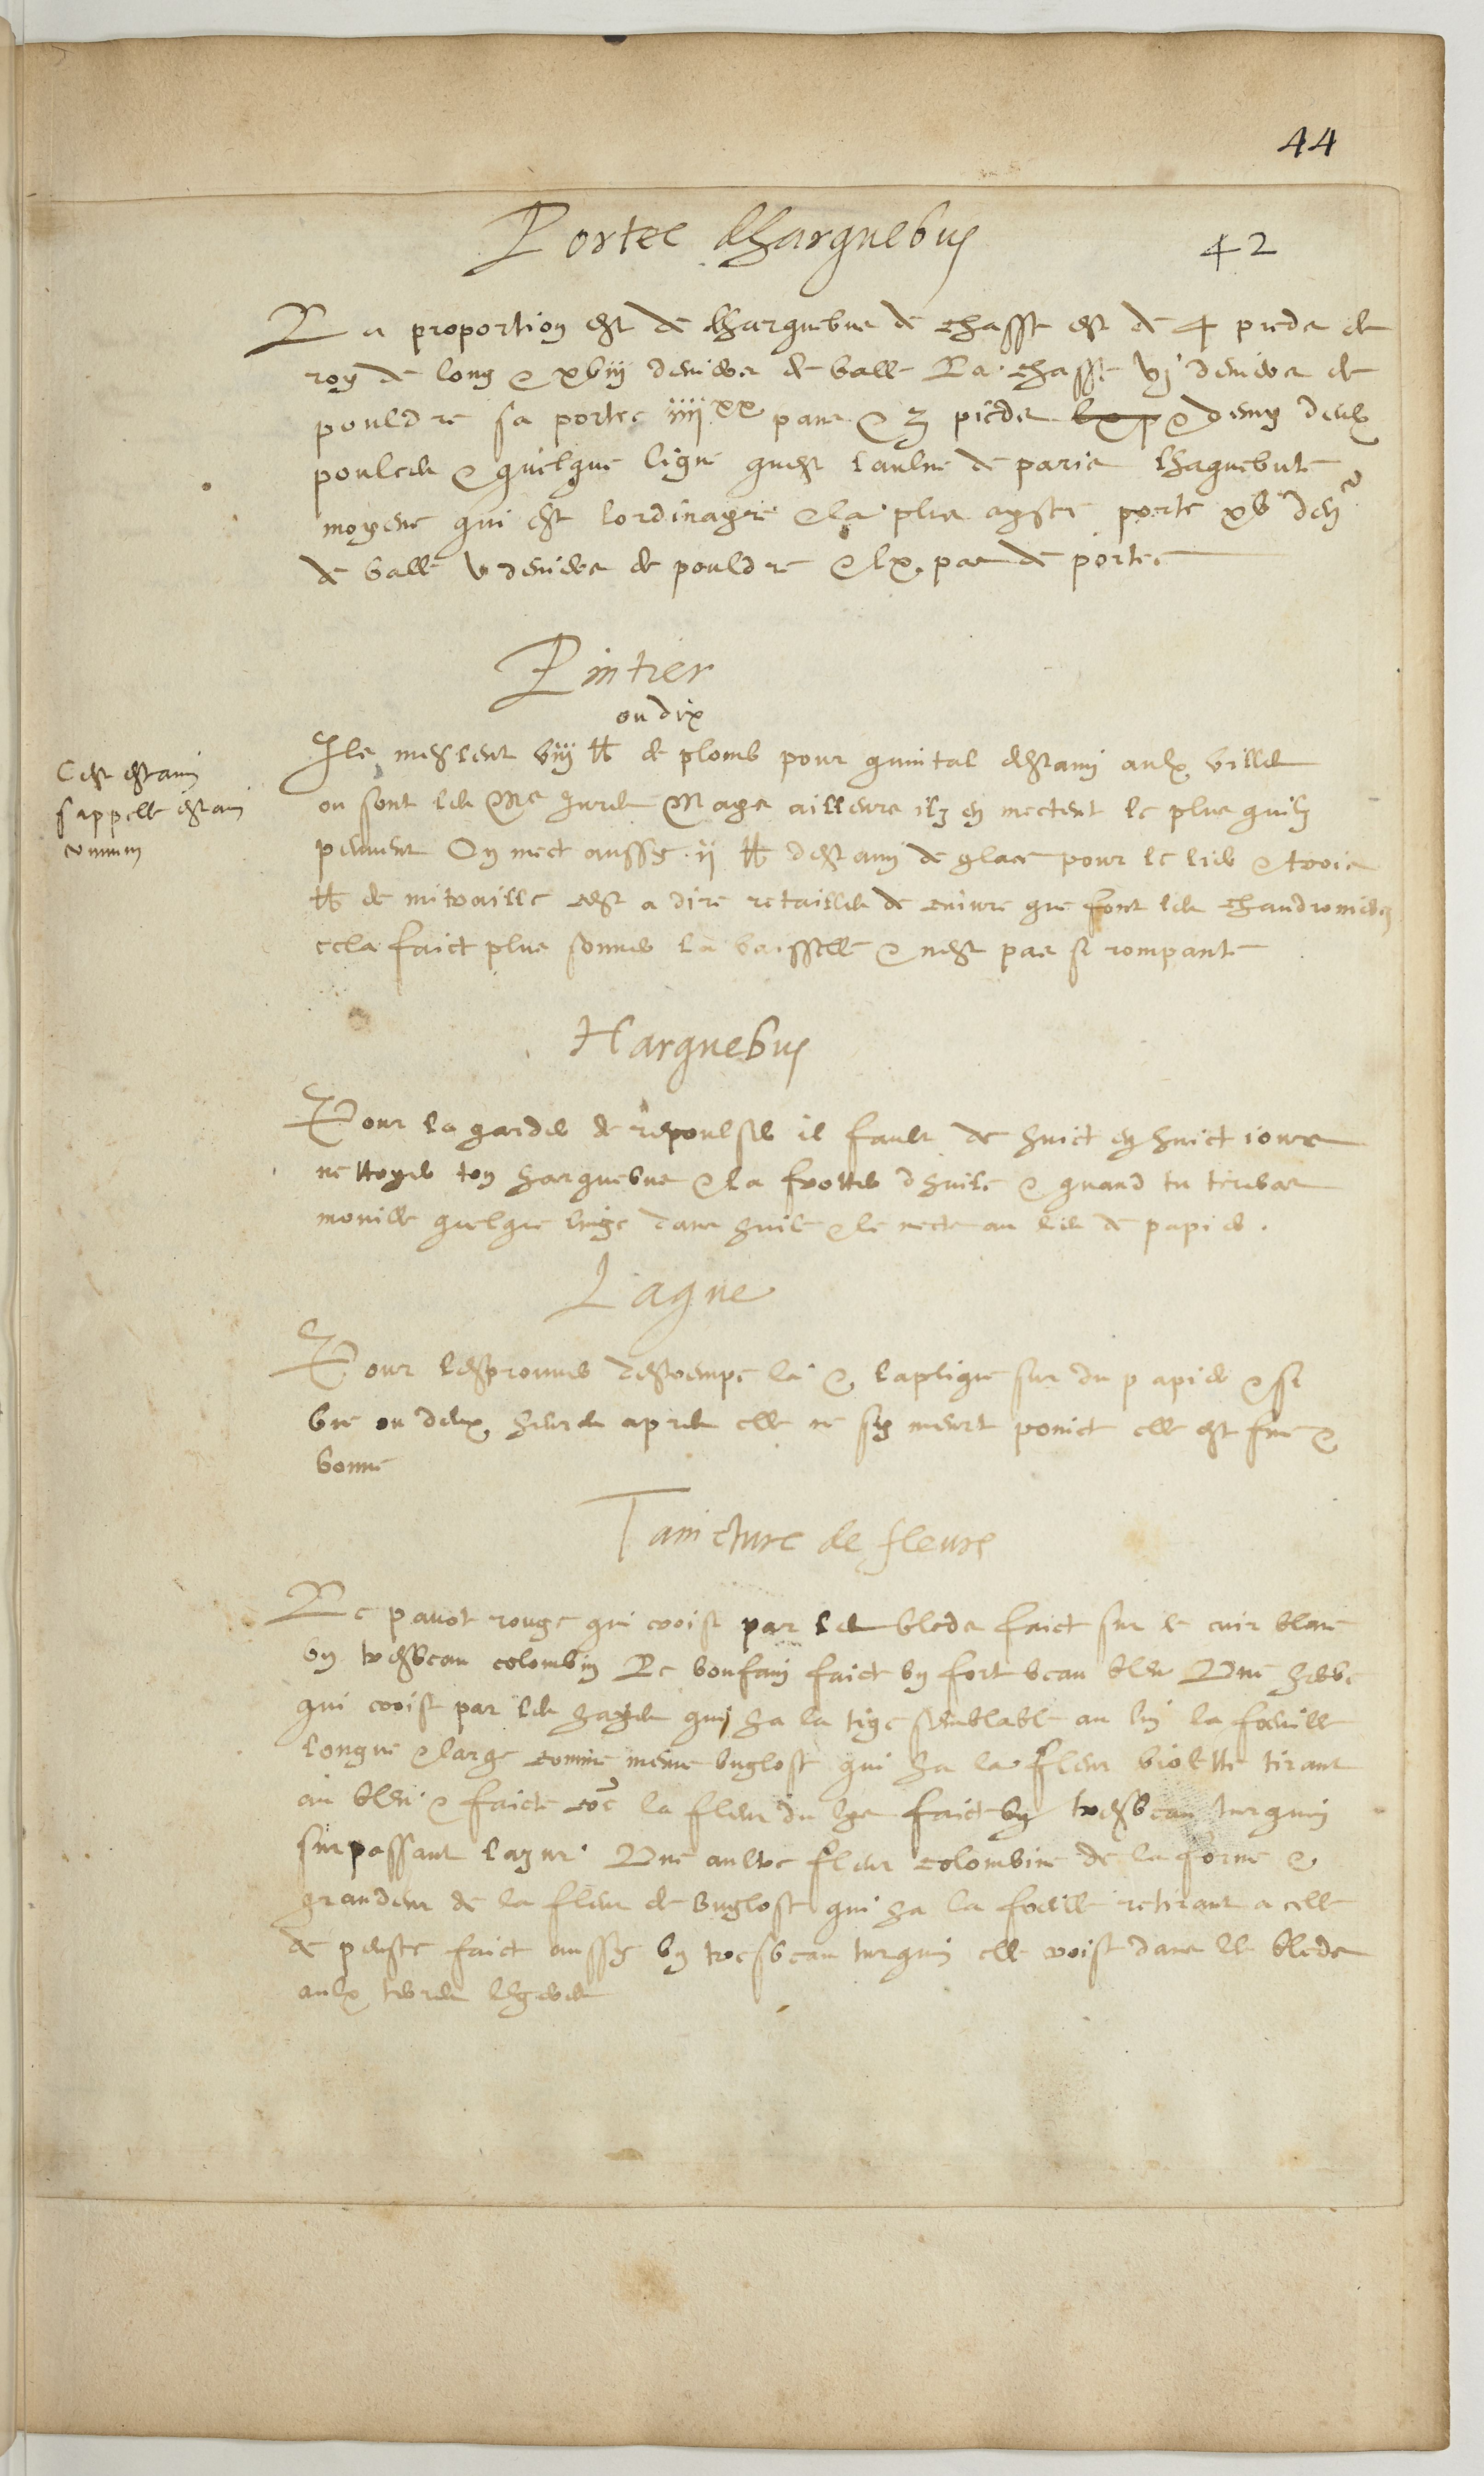 44
Portee dharquebus
42
La proportion est de lharquebus de chasse est de 4 pieds de
roy de long & xviii deniers de balle La chasse vj deniers de
pouldre sa portee iiii xx pans & 3 pieds & demy deulx
poulces & quelque ligne quest laulne de paris Lhaquebute
moyene qui est lordinayre & la plus aysee porte xv den
de balle v deniers de pouldre & lx pas de portee
Pintier
ou dix
Ils meslent viii lb de plomb pour quintal destain aulx villes
C est estain
s appelle estain
commun
ou sont les Mes jures Mays ailleurs ilz en mectent le plus quilz
peuvent On mect aussy ii lb destain de glace pour le lier & trois
lb de mitraille cest a dire retailles de cuivre que font les chaudroniers
cela faict plus sonner la vaisselle & nest pas si rompante
Harquebus
Pour la garder de repoulser il fault de huict en huict jours
nettoyer ton harquebus & la frotter dhuile & quand tu tireras
mouille quelque linge dans huile & le mects au lieu de papier
Laque
Pour lesprouver destrempe la & laplique sur du papier & si
une ou deux heures apres elle ne sy meurt poinct elle est fine &
bonne
Taincture de fleurs
Le pavot rouge qui croist par les bleds faict sur le cuir blanc
un tresbeau colombin Le boufain faict un fort beau bleu Une herbe
qui croist par les hayes qui ha la tige semblable au lin la foeuille
longue & large comme menue buglose qui ha la fleur violette tirant
au bleu & faicte coe la fleur du lys faict un tresbeau turquin
surpassant lazur Une aultre fleur colombine de la forme &
grandeur de la fleur de buglose qui ha la foeuille retirant a celle
de pensee faict aussy un tresbeau turquin elle croist dans les bleds
aulx terres legeres